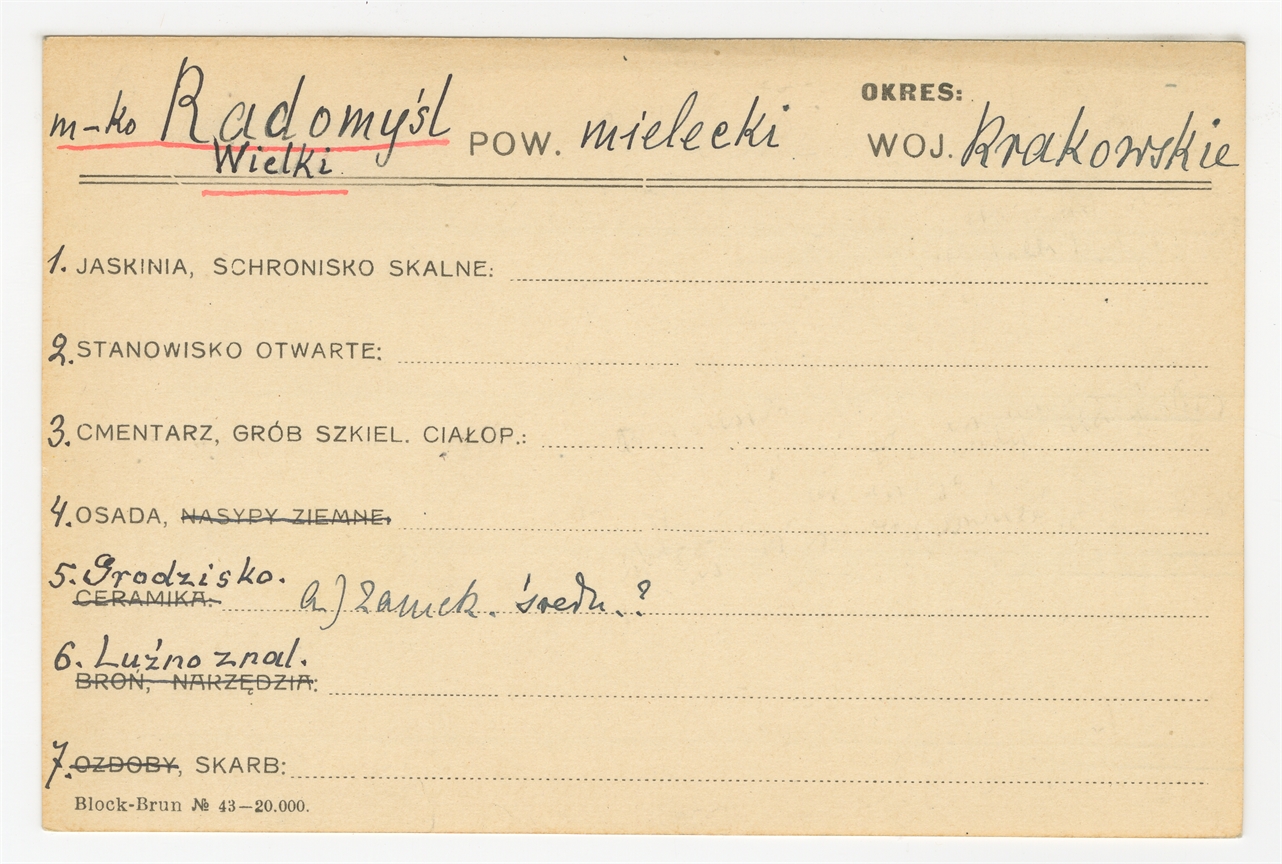 OKRES:
m-ko Radomyśl POW. mielecki WOJ. Krakowskie
Wielki
1. JASKINIA, SCHRONISKO SKALNE:
2. STANOWISKO OTWARTE:
3. CMENTARZ, GRÓB SZKIEL. CIAŁOP.:
4. OSADA, NASYPY ZIEMNE,
5. Grodzisko.
CERAMIKA: a) Zamek. średn.?
6. Luźno znal.
BROŃ, NARZĘDZIA:
7. OZDOBY, SKARB:
Block-Brun № 43—20.000.